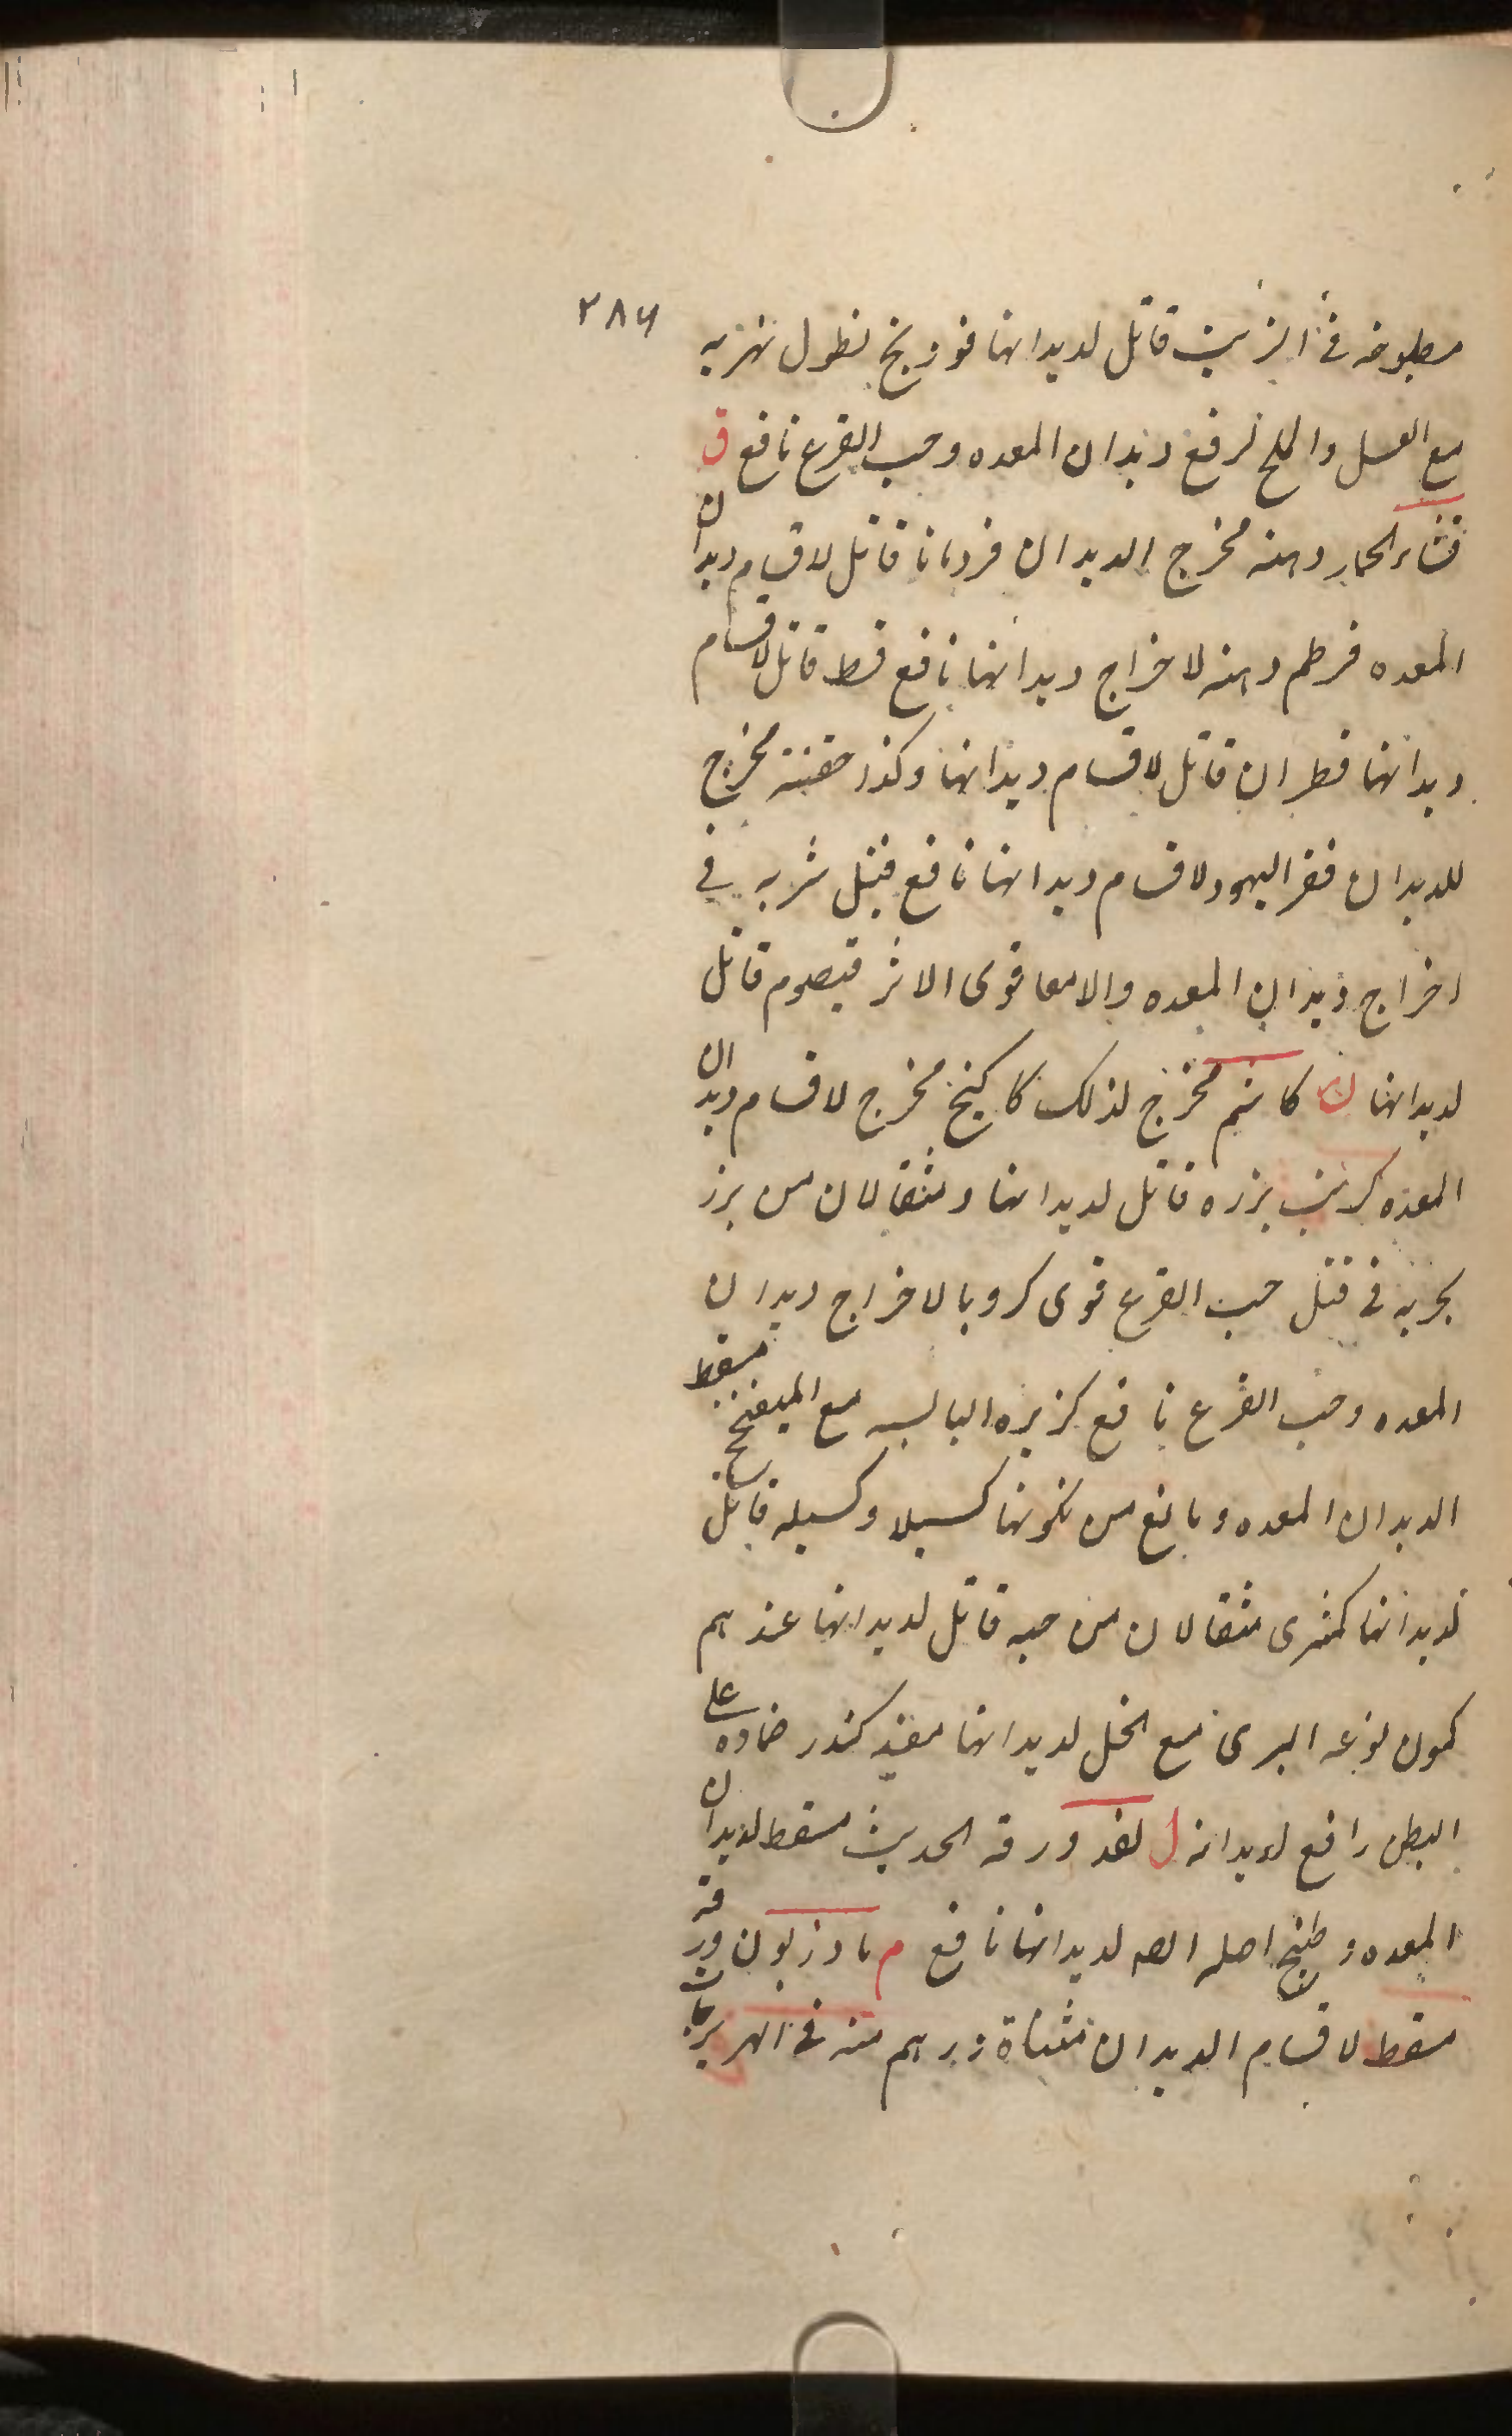 ٢٨٦
مطبوخه في الزيت قاتل لديدانها فوذنج نطول نهريه
مع العسل والملح لرفع ديدان المعده وحب القرع نافع ق
قثاء الحمار دهنه مخرج الديدان قردمانا قاتل لاقسام ديدان
المعده قرطم دهنه لاخراج ديدانها نافع قسط قاتل لاقسام
ديدانها قطران قاتل لاقسام ديدانها وكذا حقنته مخرج
للديدان فقر اليهود لاقسام ديدانها نافع قنبيل شربه في
اخراج ديدان المعده والامعا قوى الاثر قيصوم قاتل
لديدانها ك كاشم مخرج لذلك كاكنج مخرج لاقسام ديدان
المعده كرنب بزره قاتل لديدانها ومثقالان من بزر
بحريه في قتل حب القرع قوى كرويا لاخراج ديدان
المعده وحب القرع نافع كزبره اليابسه مع الميفختج مسقط
الديدان المعده ومانع من تكونها كسيلا وكسيله قاتل
لديدانها كمثرى مثقالان من حبه قاتل لديدانها عندهم
كمون نوعه البرى مع الخل لديدانها مفيد كندر ضماده على
البطن رافع لديدانه ل ورقه الحديث مسقط لديدان
المعده وطبيخ اصله لديدانها نافع م ماذريون ورقه
مسقط لاقسام الديدان مثناة درهم منه في